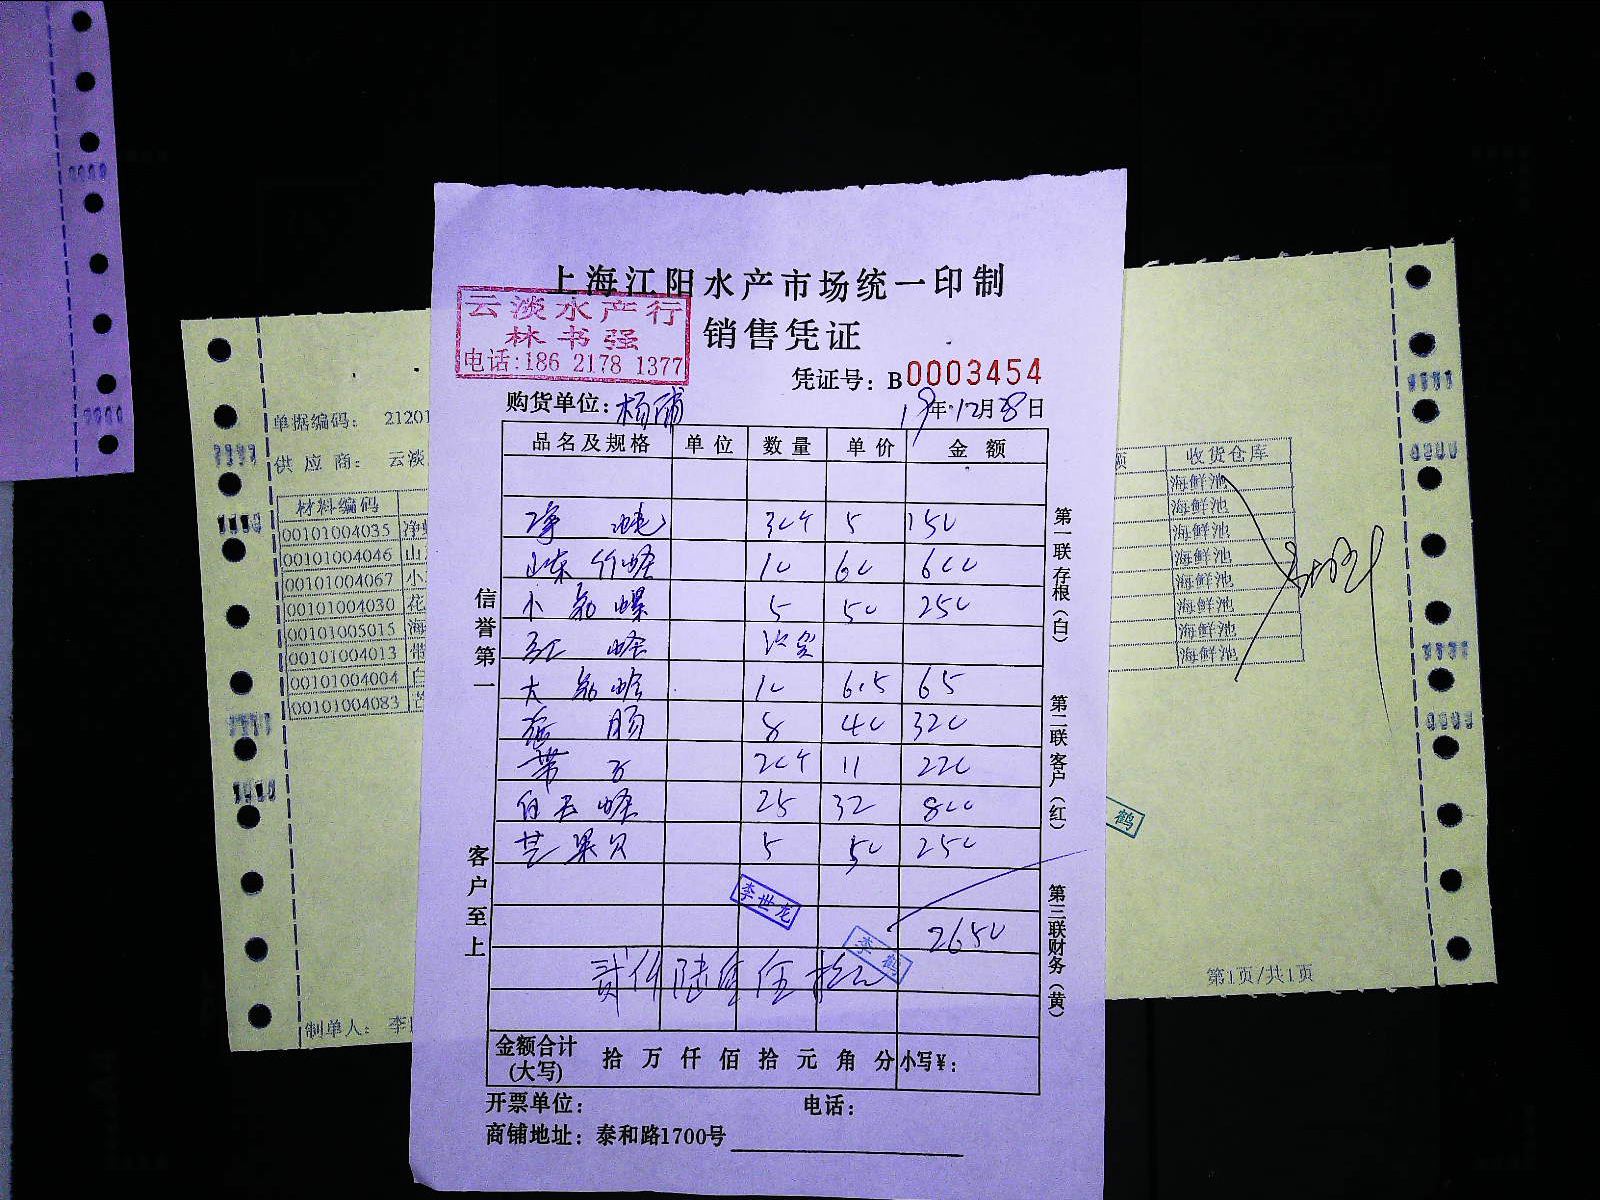 上海江阳水产市场统一印制
云淡水产行
林书强
电话:186 2178 1377
销售凭证
凭证号: B0003454
购货单位: 杨浦 19年12月28日
品名及规格 单位 数量 单价 金额
净 30个 5 150
山东竹蛏 10 60 600
小 螺 5 50 250
红 蛤 没货
大 蛤 10 6.5 65
肠 8 40 320
带子 20个 11 220
白玉蛏 25 32 800
芒果贝 5 50 250
李世龙
2650
李鹤
贰仟陆佰伍拾元
金额合计
(大写)
拾 万 仟 佰 拾 元 角 分 小写¥:
开票单位: 电话:
商铺地址: 泰和路1700号
信誉第一
客户至上
第一联 存根(白)
第二联 客户(红)
第三联 财务(黄)
单据编码: 21201
供应商: 云淡
材料编码
00101004035 净
00101004046 山
00101004067 小
00101004030 花
00101005015 海
00101004013 带
00101004004 白
00101004083 芒
制单人: 李
收货仓库
海鲜池
海鲜池
海鲜池
海鲜池
海鲜池
海鲜池
海鲜池
海鲜池
鹤
第1页/共1页